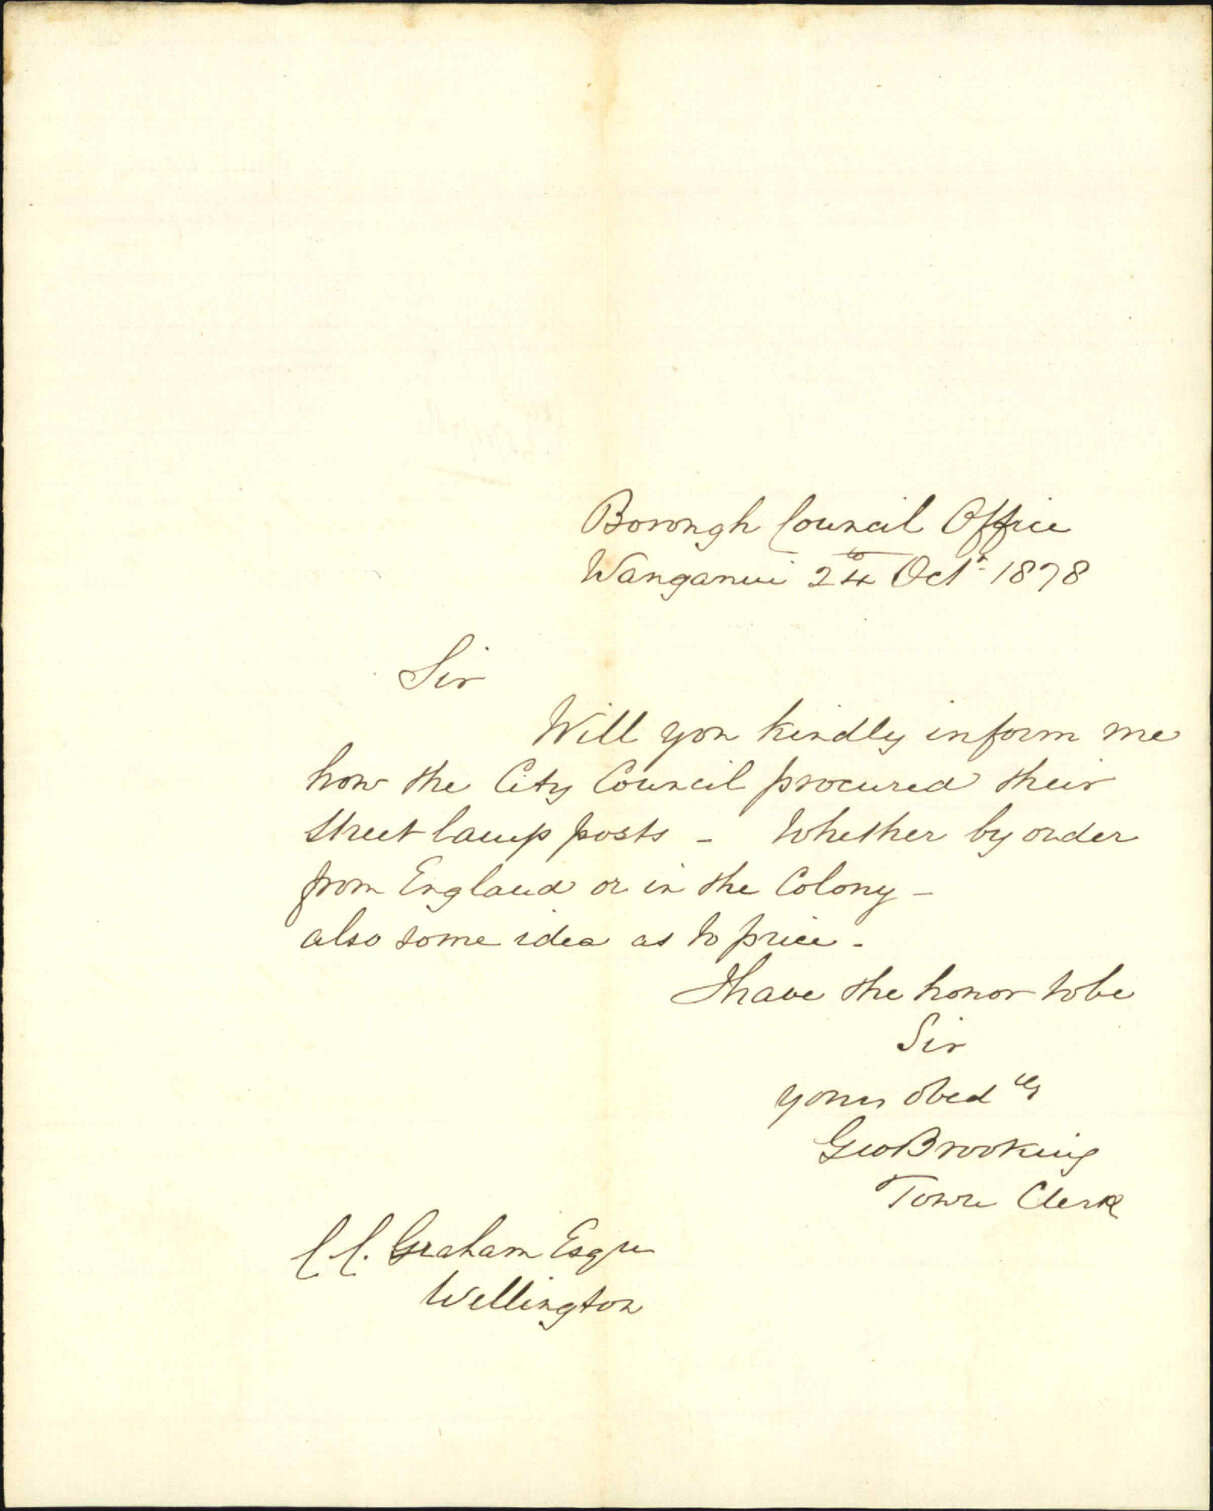 Borough Council Office
Wanganui 24th Octr 1878
Sir
Will you kindly inform me
how the City Council procured their
Street lamp posts - Whether by order
from England or in the Colony -
also some idea as to price -
I have the honor to be
Sir
yours obedtly
Geo Brooking
Town Clerk
C C. Graham Esqre
Wellington